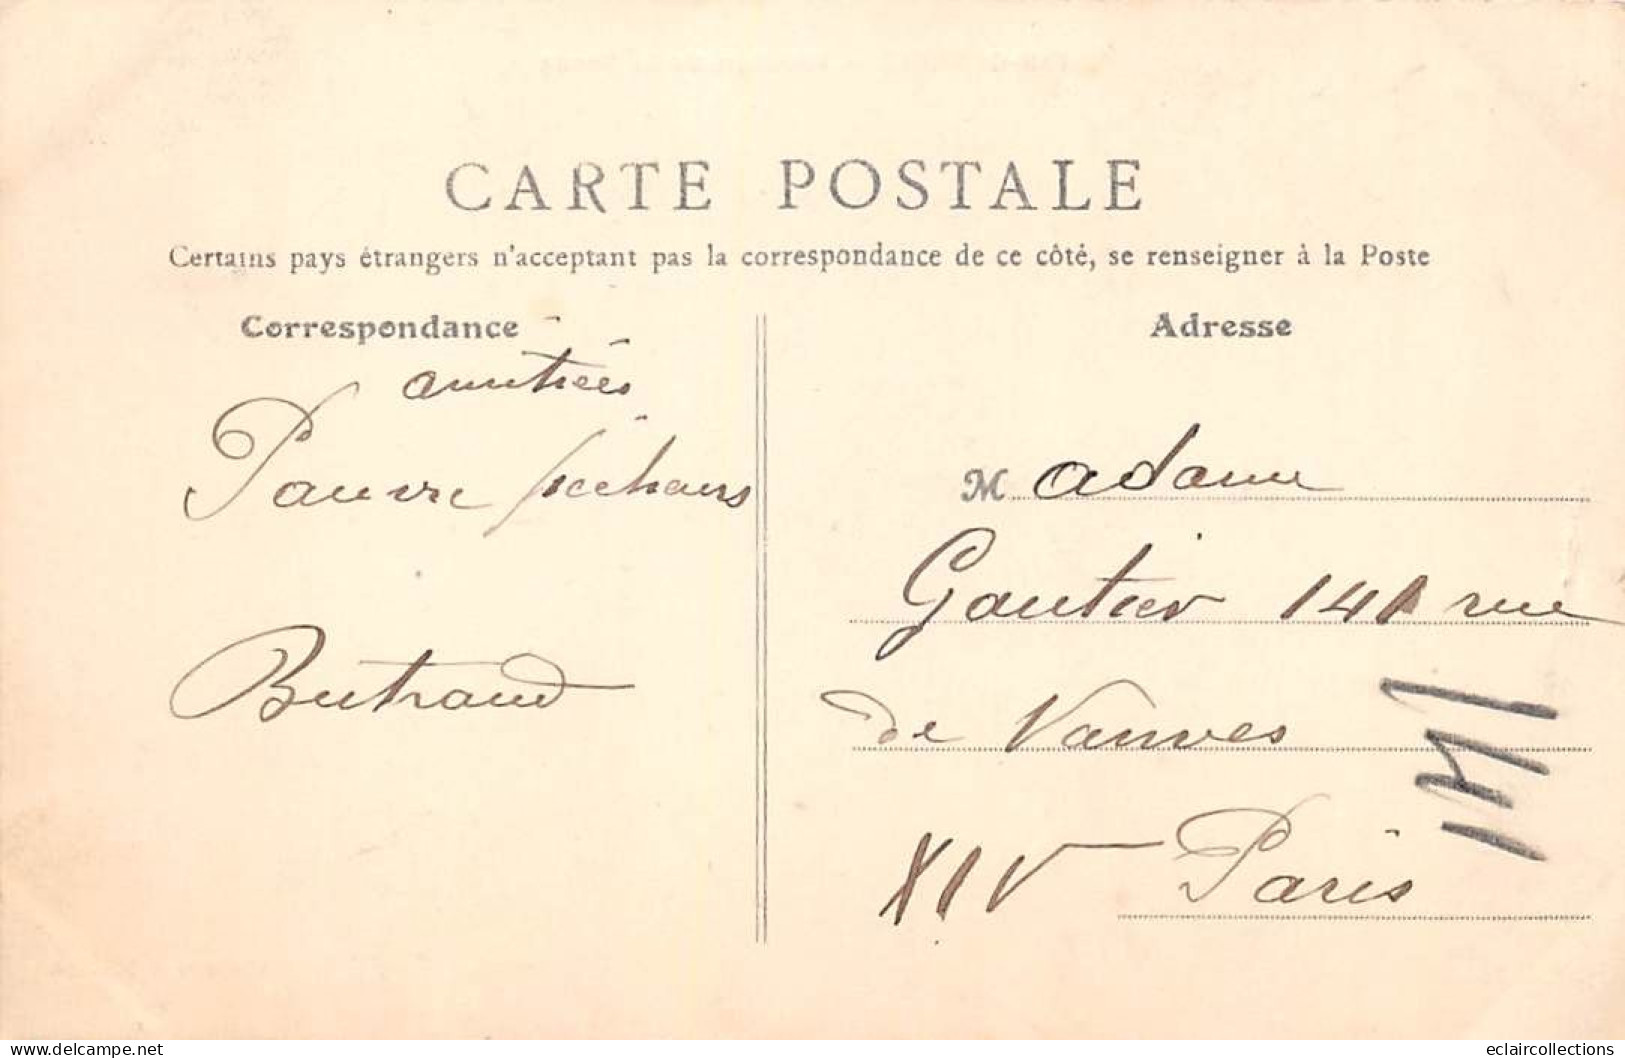 CARTE POSTALE
Certains pays étrangers n'acceptant pas la correspondance de ce côté, se renseigner à la Poste
Correspondance
amitiés
Pauvre pêcheurs
Bertrand
Adresse
Madame
Gautier 141 rue
de Vanves
XIV Paris
141
www.delcampe.net
eclaircollections